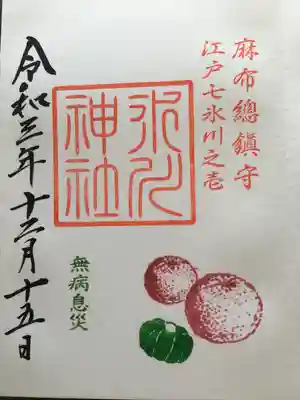 麻布總鎭守
江戸七氷川之壱
氷川
神社
無病息災
令和三年十二月十五日